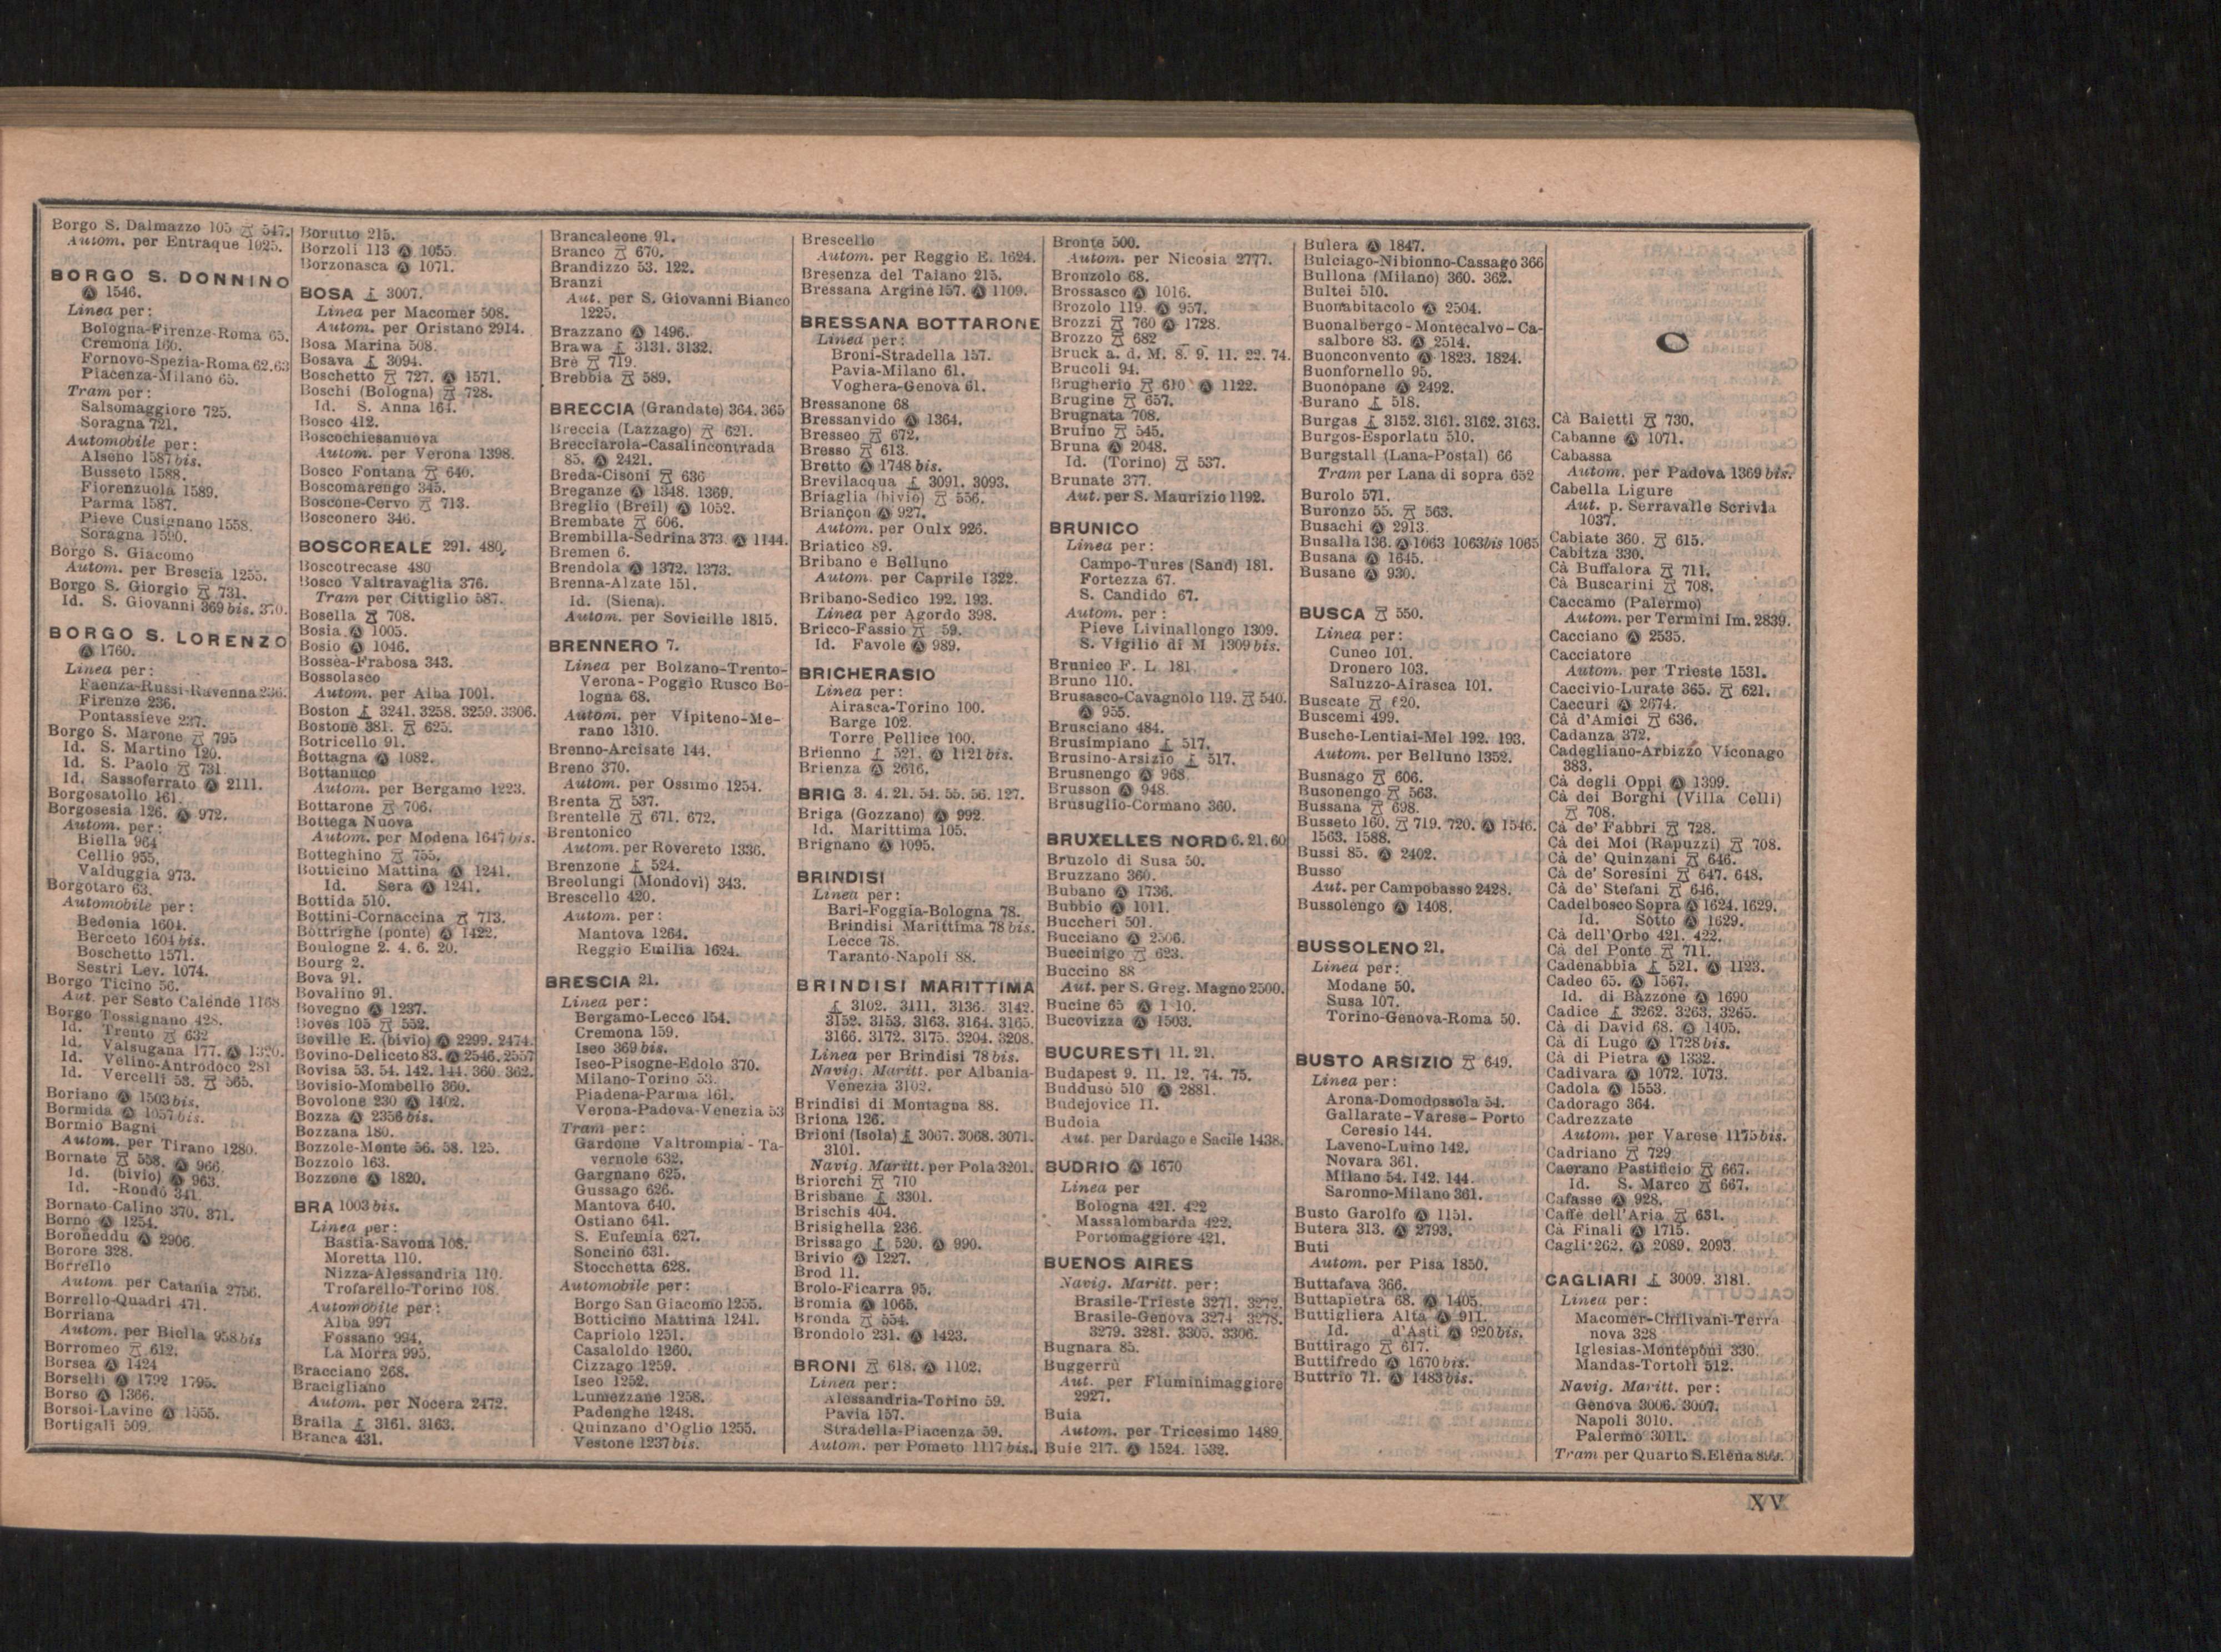 Borgo S. Dalmazzo 105 547.
Autom. per Entraque 1025.
BORGO S. DONNINO
Ⓐ 1546.
Linea per:
Bologna-Firenze-Roma 65.
Cremona 160.
Fornovo-Spezia-Roma 62.63
Piacenza-Milano 65.
Tram per:
Salsomaggiore 725.
Soragna 721.
Automobile per:
Alseno 1587 bis.
Busseto 1588.
Fiorenzuola 1589.
Parma 1587.
Pieve Cusignano 1558.
Soragna 1590.
Borgo S. Giacomo
Autom. per Brescia 1255.
Borgo S. Giorgio 731.
Id. S. Giovanni 369 bis. 370.
BORGO S. LORENZO
Ⓐ 1760.
Linea per:
Faenza-Russi-Ravenna 236.
Firenze 236.
Pontassieve 237.
Borgo S. Marone 795
Id. S. Martino 120.
Id. S. Paolo 731.
Id. Sassoferrato Ⓐ 2111.
Borgosatollo 161.
Borgosesia 126. Ⓐ 972.
Autom. per:
Biella 964
Cellio 955.
Valduggia 973.
Borgotaro 63.
Automobile per:
Bedonia 1604.
Berceto 1604 bis.
Boschetto 1571.
Sestri Lev. 1074.
Borgo Ticino 56.
Aut. per Sesto Calende 1168
Borgo Tossignano 428.
Id. Trento 632
Id. Valsugana 177. Ⓐ 1320.
Id. Velino-Antrodoco 281
Id. Vercelli 53. 565.
Boriano Ⓐ 1503 bis.
Bormida Ⓐ 1057 bis.
Bormio Bagni
Autom. per Tirano 1280.
Bornate 558. Ⓐ 966.
Id. (bivio) Ⓐ 963.
Id. -Rondò 341.
Bornato-Calino 370. 371.
Borno Ⓐ 1254.
Boroneddu Ⓐ 2906.
Borore 328.
Borrello
Autom. per Catania 2756.
Borrello-Quadri 471.
Borriana
Autom. per Biella 958 bis
Borromeo 612.
Borsea Ⓐ 1424
Borselli Ⓐ 1792 1795.
Borso Ⓐ 1366.
Borsoi-Lavine Ⓐ 1555.
Bortigali 509.
Borutto 215.
Borzoli 113 Ⓐ 1055
Borzonasca Ⓐ 1071.
BOSA 3007.
Linea per Macomer 508.
Autom. per Oristano 2914.
Bosa Marina 508.
Bosava 3094.
Boschetto 727. Ⓐ 1571.
Boschi (Bologna) 728.
Id. S. Anna 164.
Bosco 412.
Boscochiesanuova
Autom. per Verona 1398.
Bosco Fontana 640.
Boscomarengo 345.
Boscone-Cervo 713.
Bosconero 346.
BOSCOREALE 291. 480.
Boscotrecase 480
Bosco Valtravaglia 376.
Tram per Cittiglio 587.
Bosella 708.
Bosia Ⓐ 1005.
Bosio Ⓐ 1046.
Bossea-Frabosa 343.
Bossolasco
Autom. per Alba 1001.
Boston 3241. 3258. 3259. 3306.
Bostone 381. 625.
Botricello 91.
Bottagna Ⓐ 1082.
Bottanuco
Autom. per Bergamo 1223.
Bottarone 706.
Bottega Nuova
Autom. per Modena 1647 bis.
Botteghino 755.
Botticino Mattina Ⓐ 1241.
Id. Sera Ⓐ 1241.
Bottida 510.
Bottini-Cornaccina 713.
Bottrighe (ponte) Ⓐ 1422.
Boulogne 2. 4. 6. 20.
Bourg 2.
Bova 91.
Bovalino 91.
Bovegno Ⓐ 1237.
Boves 105 552.
Boville E. (bivio) Ⓐ 2299. 2474.
Bovino-Deliceto 83. Ⓐ 2546. 2557
Bovisa 53. 54. 142. 144. 360. 362.
Bovisio-Mombello 360.
Bovolone 230 Ⓐ 1402.
Bozza Ⓐ 2356 bis.
Bozzana 180.
Bozzole-Monte 56. 58. 125.
Bozzolo 163.
Bozzone Ⓐ 1820.
BRA 1003 bis.
Linea per:
Bastia-Savona 108.
Moretta 110.
Nizza-Alessandria 110.
Trofarello-Torino 108.
Automobile per:
Alba 997
Fossano 994.
La Morra 995.
Bracciano 268.
Bracigliano
Autom. per Nocera 2472.
Braila 3161. 3163.
Branca 431.
Brancaleone 91.
Branco 670.
Brandizzo 53. 122.
Branzi
Aut. per S. Giovanni Bianco
1225.
Brazzano Ⓐ 1496.
Brawa 3131. 3132.
Bre 719.
Brebbia 589.
BRECCIA (Grandate) 364. 365
Breccia (Lazzago) 621.
Brecciarola-Casalincontrada
85. Ⓐ 2421.
Breda-Cisoni 636
Breganze Ⓐ 1348. 1369.
Breglio (Breil) Ⓐ 1052.
Brembate 606.
Brembilla-Sedrina 373. Ⓐ 1144.
Bremen 6.
Brendola Ⓐ 1372. 1373.
Brenna-Alzate 151.
Id. (Siena).
Autom. per Sovicille 1815.
BRENNERO 7.
Linea per Bolzano-Trento-
Verona-Poggio Rusco Bo-
logna 68.
Autom. per Vipiteno-Me-
rano 1310.
Brenno-Arcisate 144.
Breno 370.
Autom. per Ossimo 1254.
Brenta 537.
Brentelle 671. 672.
Brentonico
Autom. per Rovereto 1336.
Brenzone 524.
Breolungi (Mondovì) 343.
Brescello 420.
Autom. per:
Mantova 1264.
Reggio Emilia 1624.
BRESCIA 21.
Linea per:
Bergamo-Lecco 154.
Cremona 159.
Iseo 369 bis.
Iseo-Pisogne-Edolo 370.
Milano-Torino 53.
Piadena-Parma 161.
Verona-Padova-Venezia 53
Tram per:
Gardone Valtrompia-Ta-
vernole 632.
Gargnano 625.
Gussago 626.
Mantova 640.
Ostiano 641.
S. Eufemia 627.
Soncino 631.
Stocchetta 628.
Automobile per:
Borgo San Giacomo 1255.
Botticino Mattina 1241.
Capriolo 1251.
Casaloldo 1260.
Cizzago 1259.
Iseo 1252.
Lumezzane 1258.
Padenghe 1248.
Quinzano d'Oglio 1255.
Vestone 1237 bis.
Brescello
Autom. per Reggio E. 1624.
Bresenza del Taiano 215.
Bressana Argine 157. Ⓐ 1109.
BRESSANA BOTTARONE
Linea per:
Broni-Stradella 157.
Pavia-Milano 61.
Voghera-Genova 61.
Bressanone 68
Bressanvido Ⓐ 1364.
Bresseo 672.
Bresso 613.
Bretto Ⓐ 1748 bis.
Brevilacqua 3091. 3093.
Briaglia (bivio) 556.
Briançon Ⓐ 927.
Autom. per Oulx 926.
Briatico 89.
Bribano e Belluno
Autom. per Caprile 1322.
Bribano-Sedico 192. 193.
Linea per Agordo 398.
Bricco-Fassio 59.
Id. Favole Ⓐ 989.
BRICHERASIO
Linea per:
Airasca-Torino 100.
Barge 102.
Torre Pellice 100.
Brienno 521. Ⓐ 1121 bis.
Brienza Ⓐ 2616.
BRIG 3. 4. 21. 54. 55. 56. 127.
Briga (Gozzano) Ⓐ 992.
Id. Marittima 105.
Brignano Ⓐ 1095.
BRINDISI
Linea per:
Bari-Foggia-Bologna 78.
Brindisi Marittima 78 bis.
Lecce 78.
Taranto-Napoli 88.
BRINDISI MARITTIMA
3102. 3111. 3136. 3142.
3152. 3153. 3163. 3164. 3165.
3166. 3172. 3175. 3204. 3208.
Linea per Brindisi 78 bis.
Navig. Maritt. per Albania-
Venezia 3102.
Brindisi di Montagna 88.
Briona 126.
Brioni (Isola) 3067. 3068. 3071.
3101.
Navig. Maritt. per Pola 3201.
Briorchi 710
Brisbane 3301.
Brischis 404.
Brisighella 236.
Brissago 520. Ⓐ 990.
Brivio Ⓐ 1227.
Brod 11.
Brolo-Ficarra 95.
Bromia Ⓐ 1065.
Bronda 554.
Brondolo 231. Ⓐ 1423.
BRONI 618. Ⓐ 1102.
Linea per:
Alessandria-Torino 59.
Pavia 157.
Stradella-Piacenza 59.
Autom. per Pometo 1117 bis.
Bronte 500.
Autom. per Nicosia 2777.
Bronzolo 68.
Brossasco Ⓐ 1016.
Brozolo 119. Ⓐ 957.
Brozzi 760 Ⓐ 1728.
Brozzo 682
Bruck a. d. M. 8. 9. 11. 22. 74.
Brucoli 94.
Brugherio 610 Ⓐ 1122.
Brugine 657.
Brugnata 708.
Bruino 545.
Bruna Ⓐ 2048.
Id. (Torino) 537.
Brunate 377.
Aut. per S. Maurizio 1192.
BRUNICO
Linea per:
Campo-Tures (Sand) 181.
Fortezza 67.
S. Candido 67.
Autom. per:
Pieve Livinallongo 1309.
S. Vigilio di M 1309 bis.
Brunico F. L. 181.
Bruno 110.
Brusasco-Cavagnolo 119. 540.
Ⓐ 955.
Brusciano 484.
Brusimpiano 517.
Brusino-Arsizio 517.
Brusnengo Ⓐ 968.
Brusson Ⓐ 948.
Brusuglio-Cormano 360.
BRUXELLES NORD 6. 21. 60
Bruzolo di Susa 50.
Bruzzano 360.
Bubano Ⓐ 1736.
Bubbio Ⓐ 1011.
Buccheri 501.
Bucciano Ⓐ 2506.
Buccinigo 623.
Buccino 88
Aut. per S. Greg. Magno 2500.
Bucine 65 Ⓐ
Bucovizza Ⓐ 1503.
BUCURESTI 11. 21.
Budapest 9. 11. 12. 74. 75.
Buddusò 510 Ⓐ 2881.
Budejovice II.
Budoia
Aut. per Dardago e Sacile 1438.
BUDRIO Ⓐ 1670
Linea per
Bologna 421. 422
Massalombarda 422.
Portomaggiore 421.
BUENOS AIRES
Navig. Maritt. per:
Brasile-Trieste 3271. 3272.
Brasile-Genova 3274 3278.
3279. 3281. 3305. 3306.
Bugnara 85.
Buggerrù
Aut. per Fluminimaggiore
2927.
Buia
Autom. per Tricesimo 1489.
Buie 217. Ⓐ 1524. 1532.
Bulera Ⓐ 1847.
Bulciago-Nibionno-Cassago 366
Bullona (Milano) 360. 362.
Bultei 510.
Buonabitacolo Ⓐ 2504.
Buonalbergo-Montecalvo-Ca-
salbore 83. Ⓐ 2514.
Buonconvento Ⓐ 1823. 1824.
Buonfornello 95.
Buonopane Ⓐ 2492.
Burano 518.
Burgas 3152. 3161. 3162. 3163.
Burgos-Esporlatu 510.
Burgstall (Lana-Postal) 66
Tram per Lana di sopra 652
Burolo 571.
Buronzo 55. 563.
Busachi Ⓐ 2913.
Busalla 136. Ⓐ 1063 1063bis 1065
Busana Ⓐ 1645.
Busane Ⓐ 930.
BUSCA 550.
Linea per:
Cuneo 101.
Dronero 103.
Saluzzo-Airasca 101.
Buscate 620.
Buscemi 499.
Busche-Lentiai-Mel 192. 193.
Autom. per Belluno 1352.
Busnago 606.
Busonengo 563.
Bussana 698.
Busseto 160. 719. 720. Ⓐ 1546.
1563. 1588.
Bussi 85. Ⓐ 2402.
Busso
Aut. per Campobasso 2428.
Bussolengo Ⓐ 1408.
BUSSOLENO 21.
Linea per:
Modane 50.
Susa 107.
Torino-Genova-Roma 50.
BUSTO ARSIZIO 649.
Linea per:
Arona-Domodossola 54.
Gallarate-Varese-Porto
Ceresio 144.
Laveno-Luino 142.
Novara 361.
Milano 54. 142. 144.
Saronno-Milano 361.
Busto Garolfo Ⓐ 1151.
Butera 313. Ⓐ 2793.
Buti
Autom. per Pisa 1850.
Buttafava 366.
Buttapietra 68. Ⓐ 1405.
Buttigliera Alta Ⓐ 911.
Id. d'Asti Ⓐ 920 bis.
Buttirago 617.
Buttifredo Ⓐ 1670 bis.
Buttrio 71. Ⓐ 1483 bis.
C
Cà Baietti 730.
Cabanne Ⓐ 1071.
Cabassa
Autom. per Padova 1369 bis.
Cabella Ligure
Aut. p. Serravalle Scrivia
1037.
Cabiate 360. 615.
Cabitza 330.
Cà Buffalora 711.
Cà Buscarini 708.
Caccamo (Palermo)
Autom. per Termini Im. 2839.
Cacciano Ⓐ 2535.
Cacciatore
Autom. per Trieste 1531.
Caccivio-Lurate 365. 621.
Caccuri Ⓐ 2674.
Cà d'Amici 636.
Cadanza 372.
Cadegliano-Arbizzo Viconago
383.
Cà degli Oppi Ⓐ 1399.
Cà dei Borghi (Villa Celli)
708.
Cà de' Fabbri 728.
Cà dei Moi (Rapuzzi) 708.
Cà de' Quinzani 646.
Cà de' Soresini 647. 648.
Cà de' Stefani 646.
Cadelbosco Sopra Ⓐ 1624. 1629.
Id. Sotto Ⓐ 1629.
Cà dell'Orbo 421. 422.
Cà del Ponte 711.
Cadenabbia 521. Ⓐ 1123.
Cadeo 65. Ⓐ 1567.
Id. di Bazzone Ⓐ 1690
Cadice 3262. 3263. 3265.
Cà di David 68. Ⓐ 1405.
Cà di Lugo Ⓐ 1728 bis.
Cà di Pietra Ⓐ 1332.
Cadivara Ⓐ 1072. 1073.
Cadola Ⓐ 1553.
Cadorago 364.
Cadrezzate
Autom. per Varese 1175 bis.
Cadriano 729
Caerano Pastificio 667.
Id. S. Marco 667.
Cafasse Ⓐ 928.
Caffè dell'Aria 631.
Cà Finali Ⓐ 1715.
Cagli 262. Ⓐ 2089. 2093.
CAGLIARI 3009. 3181.
Linea per:
Macomer-Chilivani-Terra
nova 328
Iglesias-Monteponi 330.
Mandas-Tortolì 512.
Navig. Maritt. per:
Genova 3006. 3007.
Napoli 3010.
Palermo 3011.
Tram per Quarto S. Elena
XV